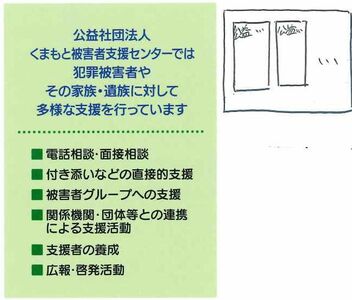 公益社団法人
くまもと被害者支援センターでは
犯罪被害者や
その家族・遺族に対して
多様な支援を行っています
■ 電話相談・面接相談
■ 付き添いなどの直接的支援
■ 被害者グループへの支援
■ 関係機関・団体等との連携
による支援活動
■ 支援者の養成
■ 広報・啓発活動
公益…
公益…
…